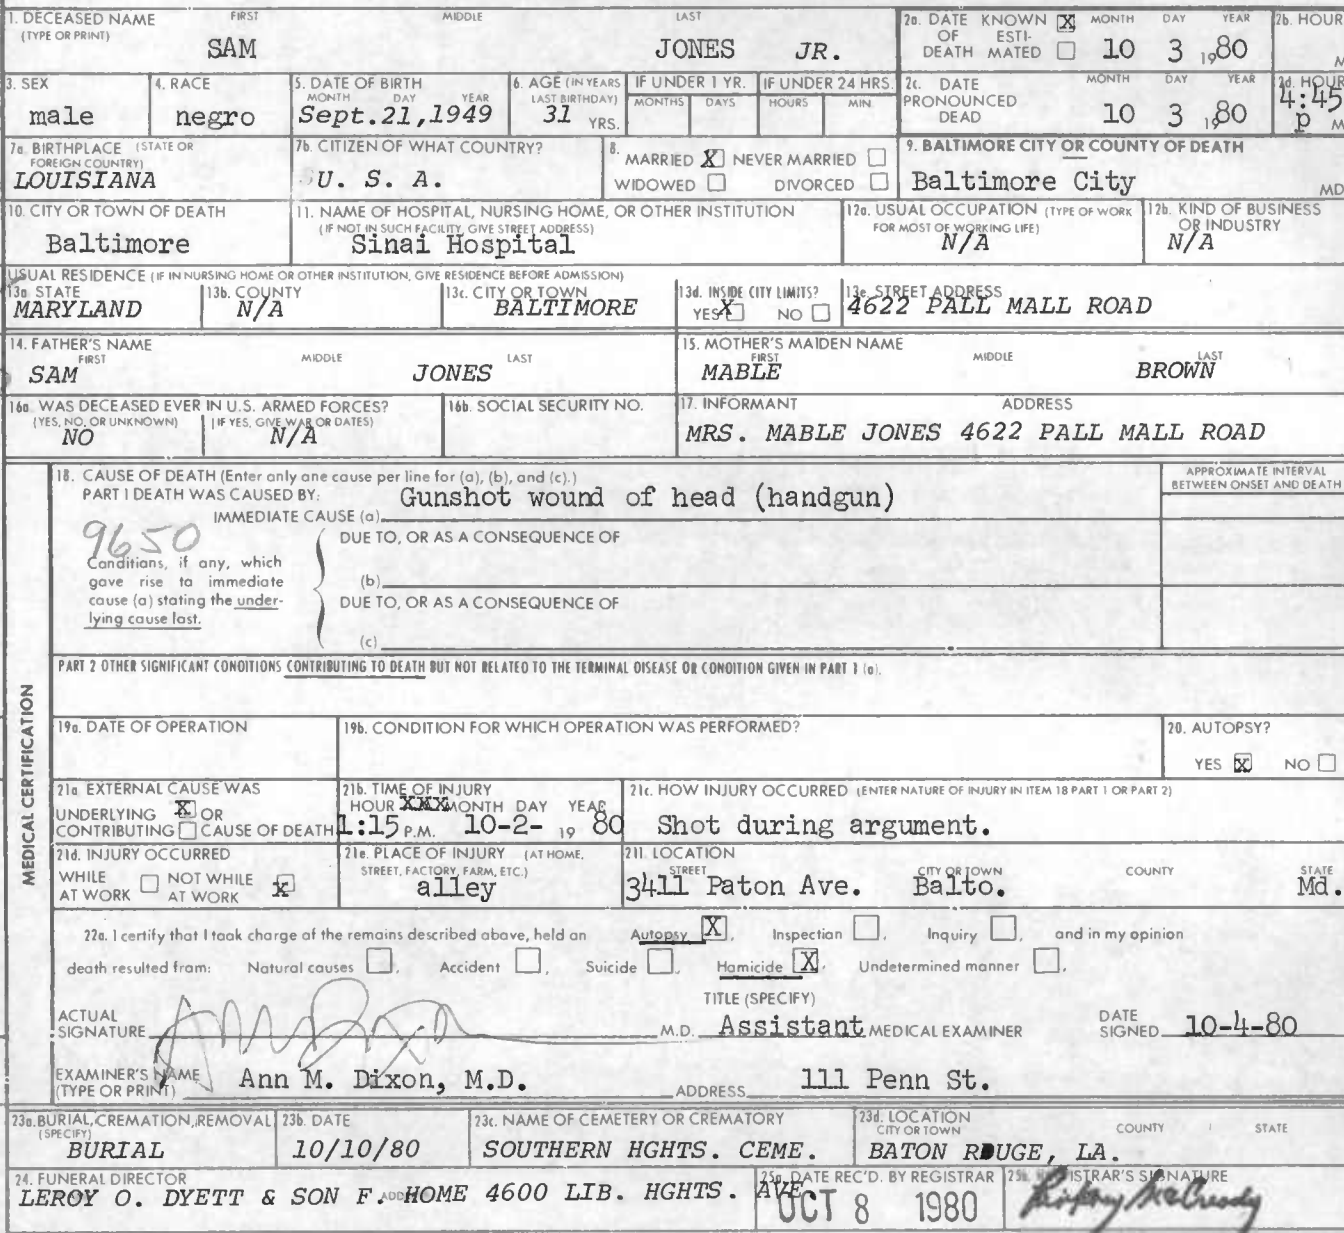 1. DECEASED NAME (TYPE OR PRINT) FIRST MIDDLE LAST
SAM JONES JR.
2a. DATE OF DEATH KNOWN X ESTIMATED MONTH DAY YEAR
10 3 1980
2b. HOUR M
3. SEX
male
4. RACE
negro
5. DATE OF BIRTH MONTH DAY YEAR
Sept.21,1949
6. AGE (IN YEARS LAST BIRTHDAY)
31 YRS.
IF UNDER 1 YR. MONTHS DAYS
IF UNDER 24 HRS. HOURS MIN.
2c. DATE PRONOUNCED DEAD MONTH DAY YEAR
10 3 1980
2d. HOUR
4:45
p M
7a. BIRTHPLACE (STATE OR FOREIGN COUNTRY)
LOUISIANA
7b. CITIZEN OF WHAT COUNTRY?
U. S. A.
8. MARRIED X NEVER MARRIED
WIDOWED DIVORCED
9. BALTIMORE CITY OR COUNTY OF DEATH
Baltimore City MD
10. CITY OR TOWN OF DEATH
Baltimore
11. NAME OF HOSPITAL, NURSING HOME, OR OTHER INSTITUTION
(IF NOT IN SUCH FACILITY, GIVE STREET ADDRESS)
Sinai Hospital
12a. USUAL OCCUPATION (TYPE OF WORK FOR MOST OF WORKING LIFE)
N/A
12b. KIND OF BUSINESS OR INDUSTRY
N/A
USUAL RESIDENCE (IF IN NURSING HOME OR OTHER INSTITUTION, GIVE RESIDENCE BEFORE ADMISSION)
13a. STATE
MARYLAND
13b. COUNTY
N/A
13c. CITY OR TOWN
BALTIMORE
13d. INSIDE CITY LIMITS?
YES X NO
13e. STREET ADDRESS
4622 PALL MALL ROAD
14. FATHER'S NAME FIRST MIDDLE LAST
SAM JONES
15. MOTHER'S MAIDEN NAME FIRST MIDDLE LAST
MABLE BROWN
16a. WAS DECEASED EVER IN U.S. ARMED FORCES?
(YES, NO, OR UNKNOWN) (IF YES, GIVE WAR OR DATES)
NO N/A
16b. SOCIAL SECURITY NO.
17. INFORMANT ADDRESS
MRS. MABLE JONES 4622 PALL MALL ROAD
MEDICAL CERTIFICATION
18. CAUSE OF DEATH (Enter only one cause per line for (a), (b), and (c).)
PART I DEATH WAS CAUSED BY:
IMMEDIATE CAUSE (a) Gunshot wound of head (handgun)
APPROXIMATE INTERVAL BETWEEN ONSET AND DEATH
9650
DUE TO, OR AS A CONSEQUENCE OF
Conditions, if any, which gave rise to immediate cause (a) stating the underlying cause last.
(b)
DUE TO, OR AS A CONSEQUENCE OF
(c)
PART 2 OTHER SIGNIFICANT CONDITIONS CONTRIBUTING TO DEATH BUT NOT RELATED TO THE TERMINAL DISEASE OR CONDITION GIVEN IN PART 1 (a).
19a. DATE OF OPERATION
19b. CONDITION FOR WHICH OPERATION WAS PERFORMED?
20. AUTOPSY?
YES X NO
21a. EXTERNAL CAUSE WAS
UNDERLYING X OR
CONTRIBUTING CAUSE OF DEATH
21b. TIME OF INJURY
HOUR XXX MONTH DAY YEAR
1:15 P.M. 10-2- 19 80
21c. HOW INJURY OCCURRED (ENTER NATURE OF INJURY IN ITEM 18 PART 1 OR PART 2)
Shot during argument.
21d. INJURY OCCURRED
WHILE AT WORK NOT WHILE AT WORK X
21e. PLACE OF INJURY (AT HOME, STREET, FACTORY, FARM, ETC.)
alley
21f. LOCATION STREET CITY OR TOWN COUNTY STATE
3411 Paton Ave. Balto. Md.
22a. I certify that I took charge of the remains described above, held an Autopsy X, Inspection , Inquiry , and in my opinion
death resulted from: Natural causes , Accident , Suicide , Homicide X, Undetermined manner .
ACTUAL SIGNATURE M.D. TITLE (SPECIFY) Assistant MEDICAL EXAMINER DATE SIGNED 10-4-80
EXAMINER'S NAME (TYPE OR PRINT) Ann M. Dixon, M.D. ADDRESS 111 Penn St.
23a. BURIAL, CREMATION, REMOVAL (SPECIFY)
BURIAL
23b. DATE
10/10/80
23c. NAME OF CEMETERY OR CREMATORY
SOUTHERN HGHTS. CEME.
23d. LOCATION CITY OR TOWN COUNTY STATE
BATON ROUGE, LA.
24. FUNERAL DIRECTOR ADDRESS
LEROY O. DYETT & SON F. HOME 4600 LIB. HGHTS. AVE.
25a. DATE REC'D. BY REGISTRAR
OCT 8 1980
25b. REGISTRAR'S SIGNATURE